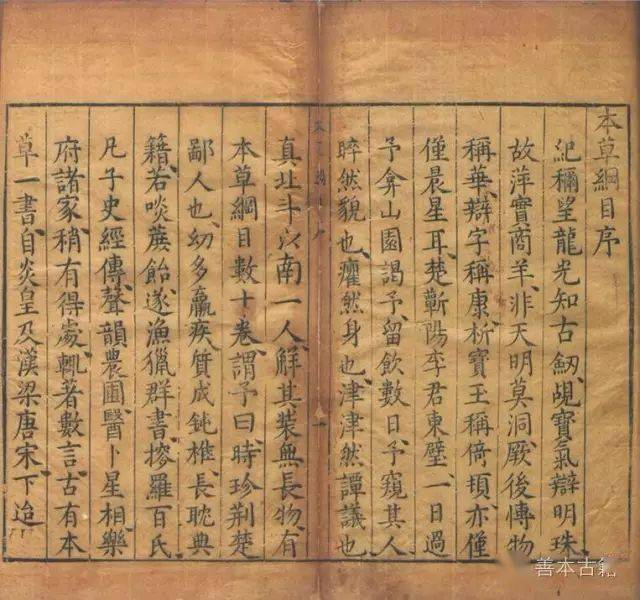 本草綱目序
紀穪望龍光知古劒覘寶氣辯明珠
故萍實商羊非天明莫洞厥後愽物
稱華辯字稱康析寶玉稱倚頓亦僅
僅晨星耳楚蘄陽李君東璧一日過
予弇山園謁予留飲數日予窺其人
睟然貌也癯然身也津津然譚議也
真北斗以南一人解其裝無長物有
本草綱目數十卷謂予曰時珍荆楚
鄙人也幼多羸疾質成鈍椎長耽典
籍若啖蔗飴遂漁獵群書搜羅百氏
凡子史經傳聲韻農圃醫卜星相樂
府諸家稍有得處輒著數言古有本
草一書自炎皇及漢梁唐宋下迨
善本古籍